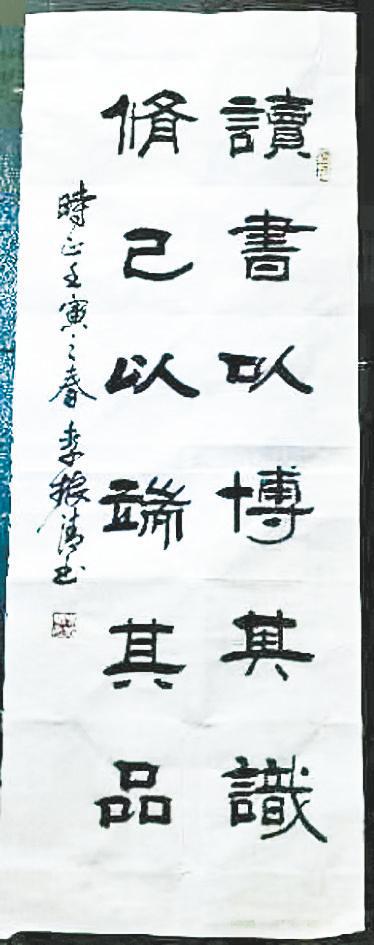 讀書以博其識
脩己以端其品
時在壬寅之春李振清书